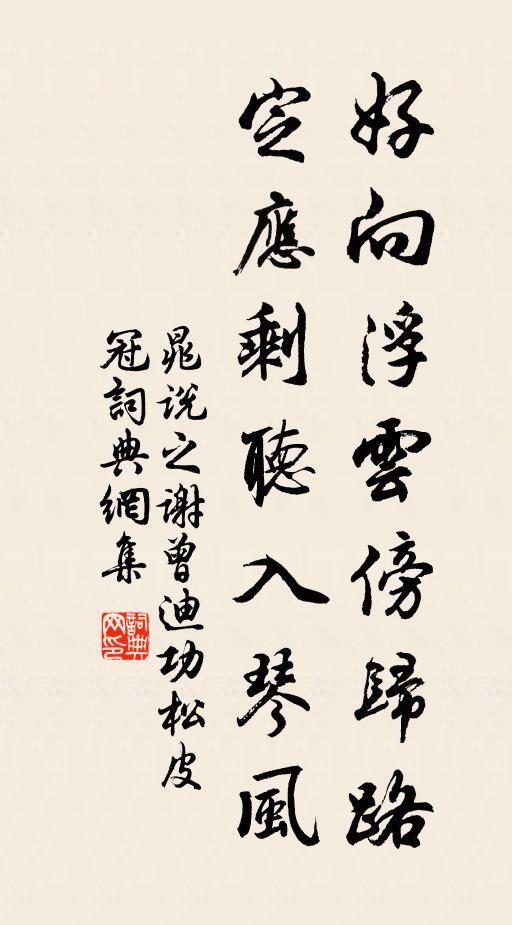 好向浮雲傍歸路
定應剩聽入琴風
晁說之謝曾迪功松皮
冠詞典網集
詞典
网印